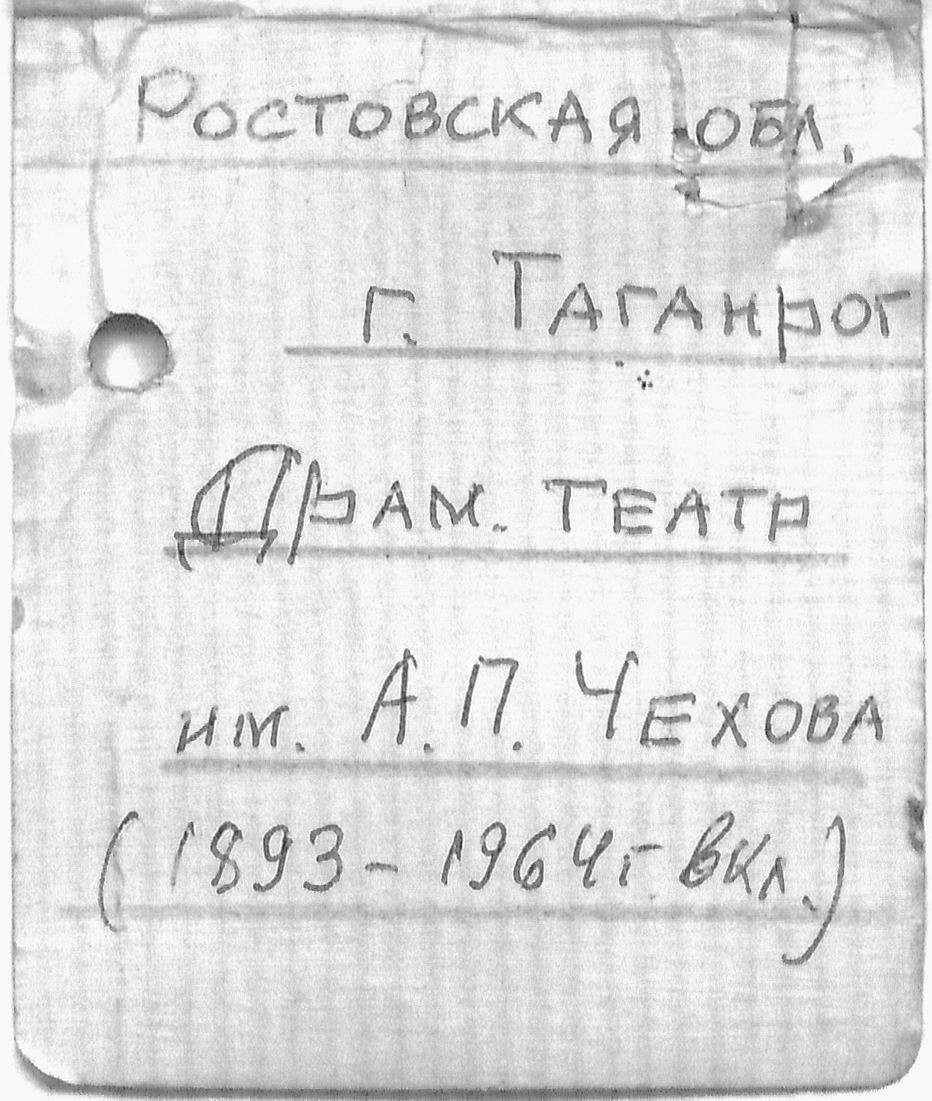 Ростовская обл.
г. Таганрог
Драм. театр
им. А.П. Чехова
(1893 - 1964г вкл.)